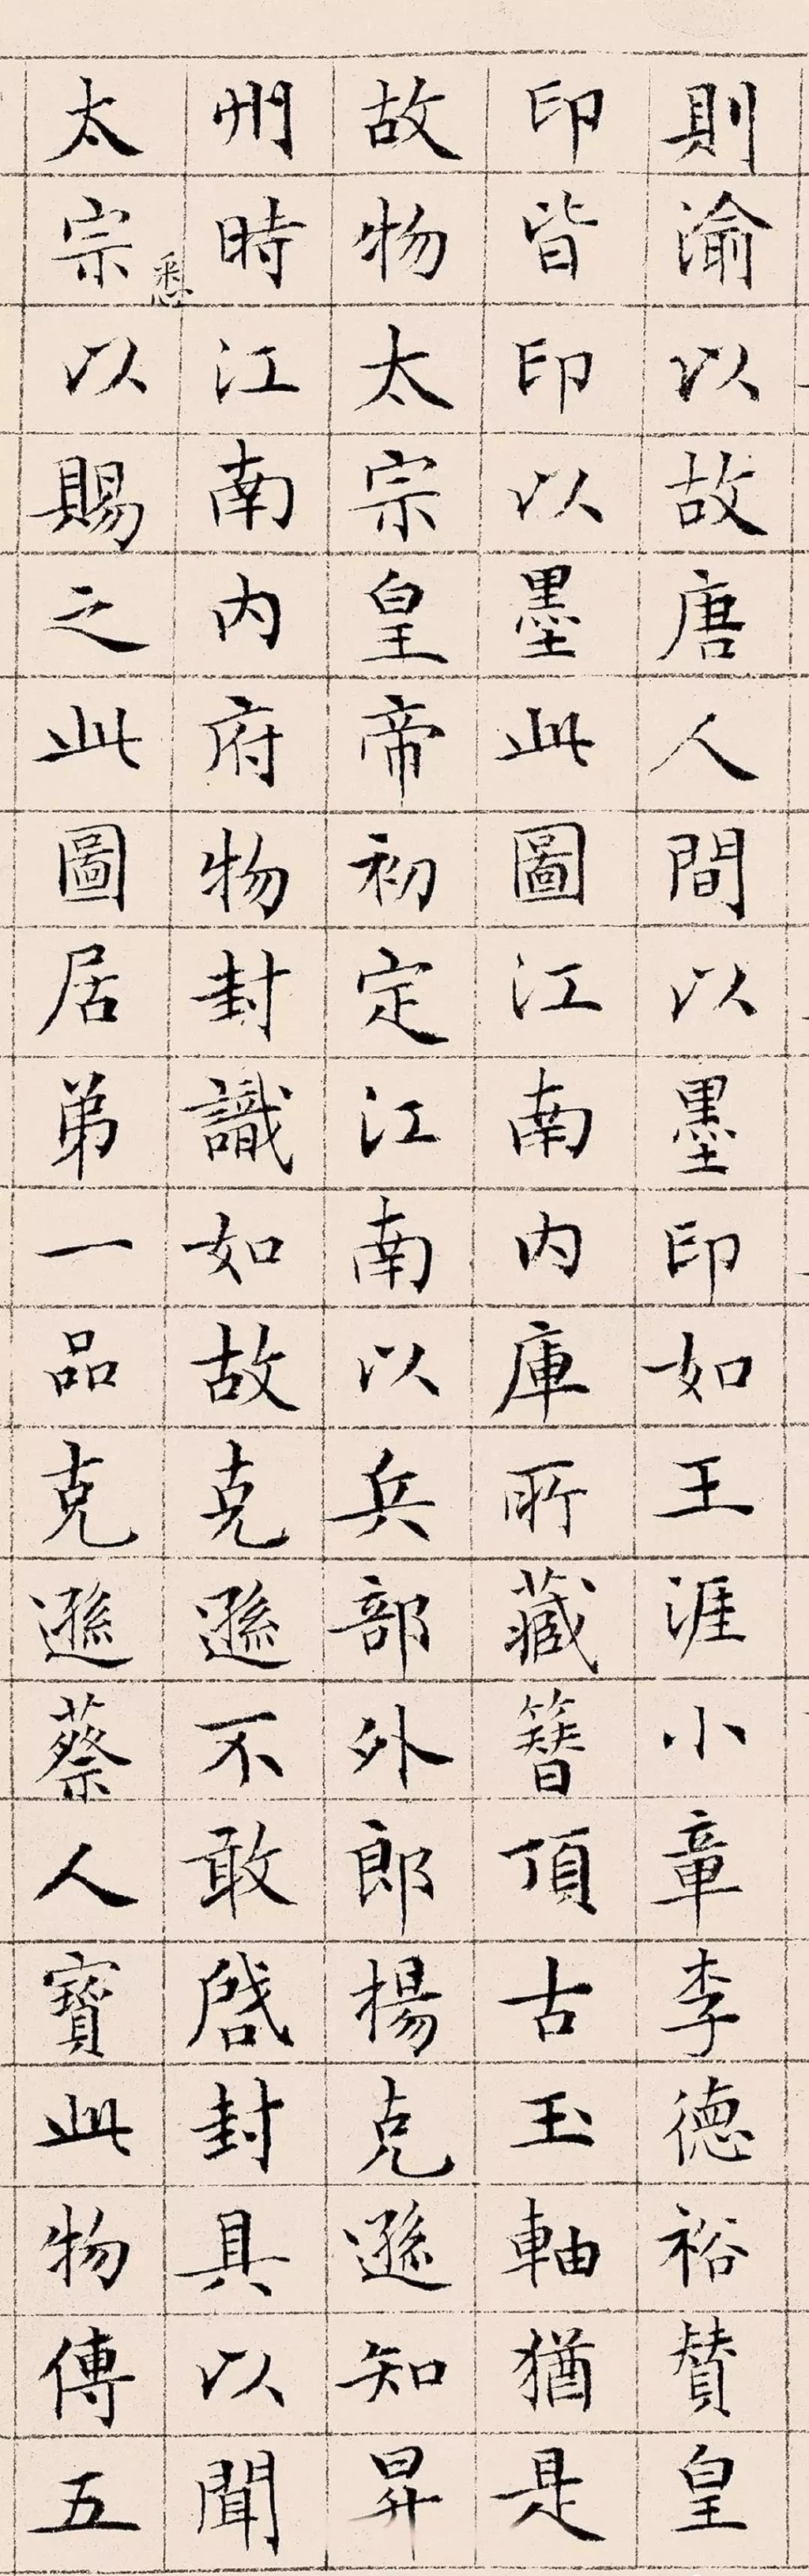 則渝以故唐人間以墨印如王涯小章李德裕贊皇
印皆印以墨此圖江南內庫所藏簪頂古玉軸猶是
故物太宗皇帝初定江南以兵部外郎楊克遜知昇
州時江南內府物封識如故克遜不敢啟封具以聞
悉
太宗以賜之此圖居弟一品克遜蔡人寶此物傳五